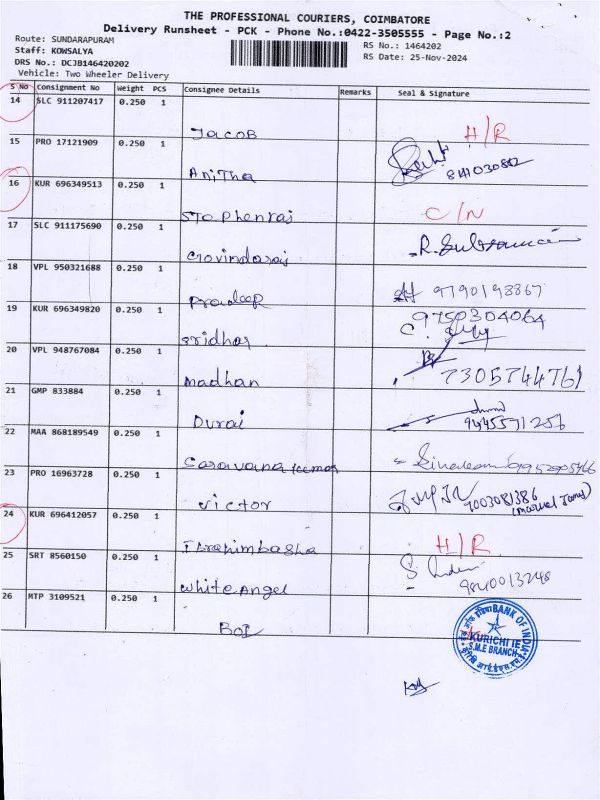 THE PROFESSIONAL COURIERS, COIMBATORE
Delivery Runsheet - PCK - Phone No.:0422-3505555 - Page No.:2
Route: SUNDARAPURAM
RS No.: 1464202
Staff: KOWSALYA
RS Date: 25-Nov-2024
DRS No.: DCJB146420202
Vehicle: Two Wheeler Delivery
S No Consignment No Weight PCS Consignee Details Remarks Seal & Signature
14 SLC 911207417 0.250 1
Jacob H/R
15 PRO 17121909 0.250 1
Anitha
16 KUR 696349513 0.250 1
Stophenraj C/N
17 SLC 911175690 0.250 1
Govindaraj
18 VPL 950321688 0.250 1
Pradeep 9790198867
19 KUR 696349820 0.250 1 9750304064
Sridhar
20 VPL 948767084 0.250 1
Madhan 7305744761
21 GMP 833884 0.250 1
Durai 9445571256
22 MAA 868189549 0.250 1
Caravana kumar
23 PRO 16963728 0.250 1
Victor 7003081386
24 KUR 696412057 0.250 1
Ibrahimbasha H/R
25 SRT 8560150 0.250 1
White Angel 9840013248
26 MTP 3109521 0.250 1
BOI
BANK OF INDIA
KURICHI IE
S.M.E BRANCH